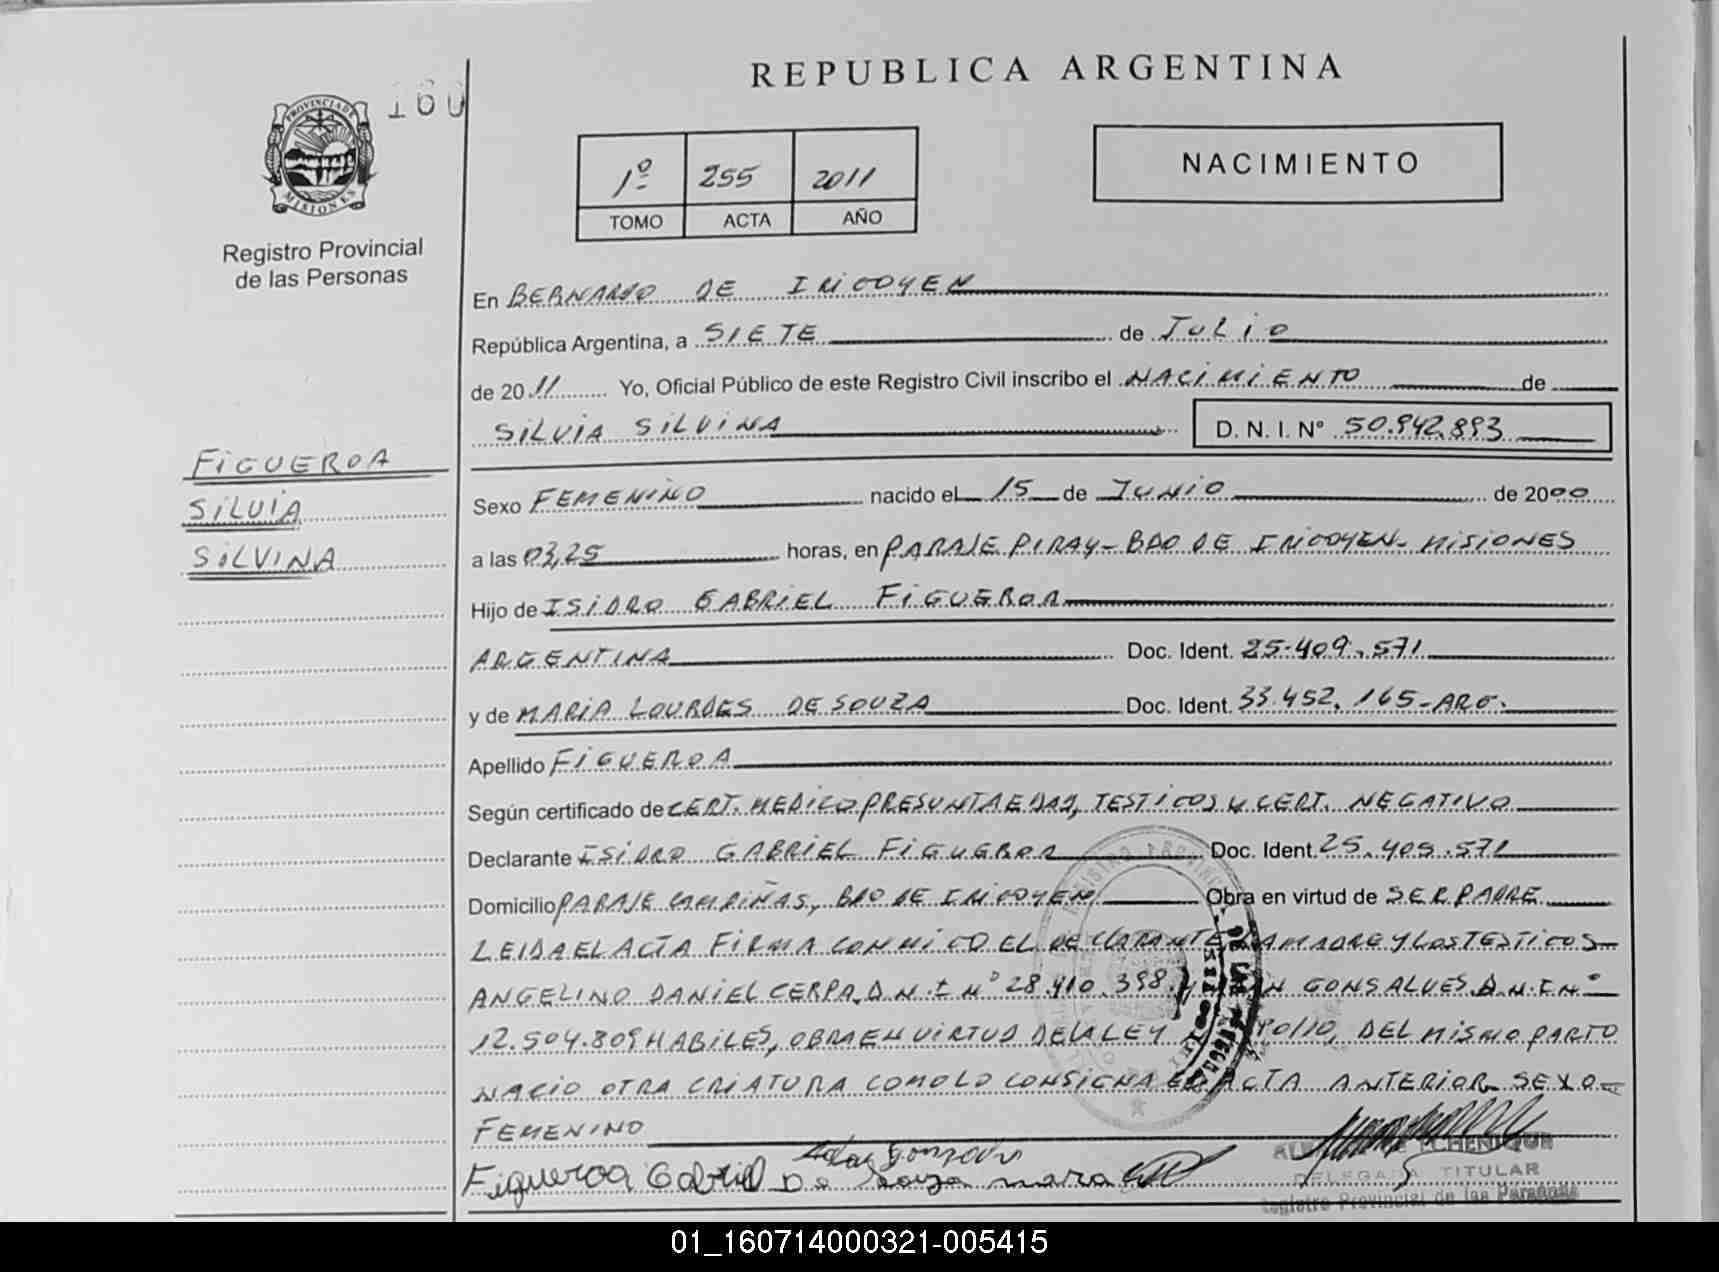 REPUBLICA ARGENTINA
160
PROVINCIA DE
MISIONES
Registro Provincial
de las Personas
1º 255 2011
TOMO ACTA AÑO
NACIMIENTO
En BERNARDO DE IRIGOYEN
República Argentina, a SIETE de JULIO
de 2011 Yo, Oficial Público de este Registro Civil inscribo el NACIMIENTO de
SILVIA SILVINA D. N. I. N° 50.942.893
FIGUEROA
SILVIA
SILVINA
Sexo FEMENINO nacido el 15 de JUNIO de 2000
a las 03,25 horas, en PARAJE PIRAY- BDO DE IRIGOYEN- MISIONES
Hijo de ISIDRO GABRIEL FIGUEROA
ARGENTINA Doc. Ident. 25.409.571
y de MARIA LOURDES DE SOUZA Doc. Ident. 33.452.165-ARG.
Apellido FIGUEROA
Según certificado de CERT. MEDICO PRESUNTA EDAD, TESTIGOS Y CERT. NEGATIVO
Declarante ISIDRO GABRIEL FIGUEROA Doc. Ident. 25.409.571
Domicilio PARAJE CAMPIÑAS, BDO DE IRIGOYEN Obra en virtud de SER PADRE
LEIDA EL ACTA FIRMA CONMIGO EL DECLARANTE LA MADRE Y LOS TESTIGOS
ANGELINO DANIEL CERPA, D.N.I N° 28.410.398 GONSALVES D.N.I N°
12.504.809 HABILES, OBRA EN VIRTUD DE LA LEY DEL MISMO PARTO
NACIO OTRA CRIATURA COMO LO CONSIGNA EL ACTA ANTERIOR SEXO
FEMENINO
Figueroa Gabriel De Souza maria
DELEGADA TITULAR
Registro Provincial de las Personas
01_160714000321-005415